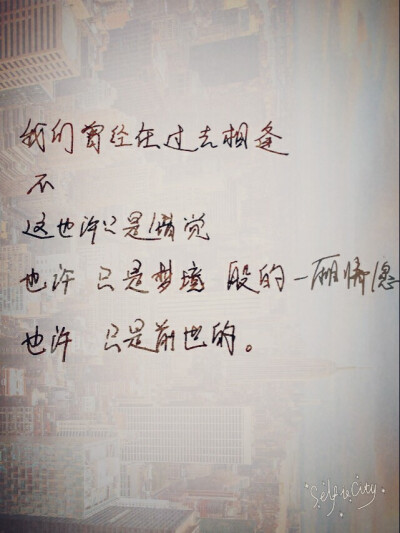 我们曾经在过去相逢
不
这也许只是错觉
也许 只是梦境 般的一厢情愿
也许 只是前世的。
SelfieCity